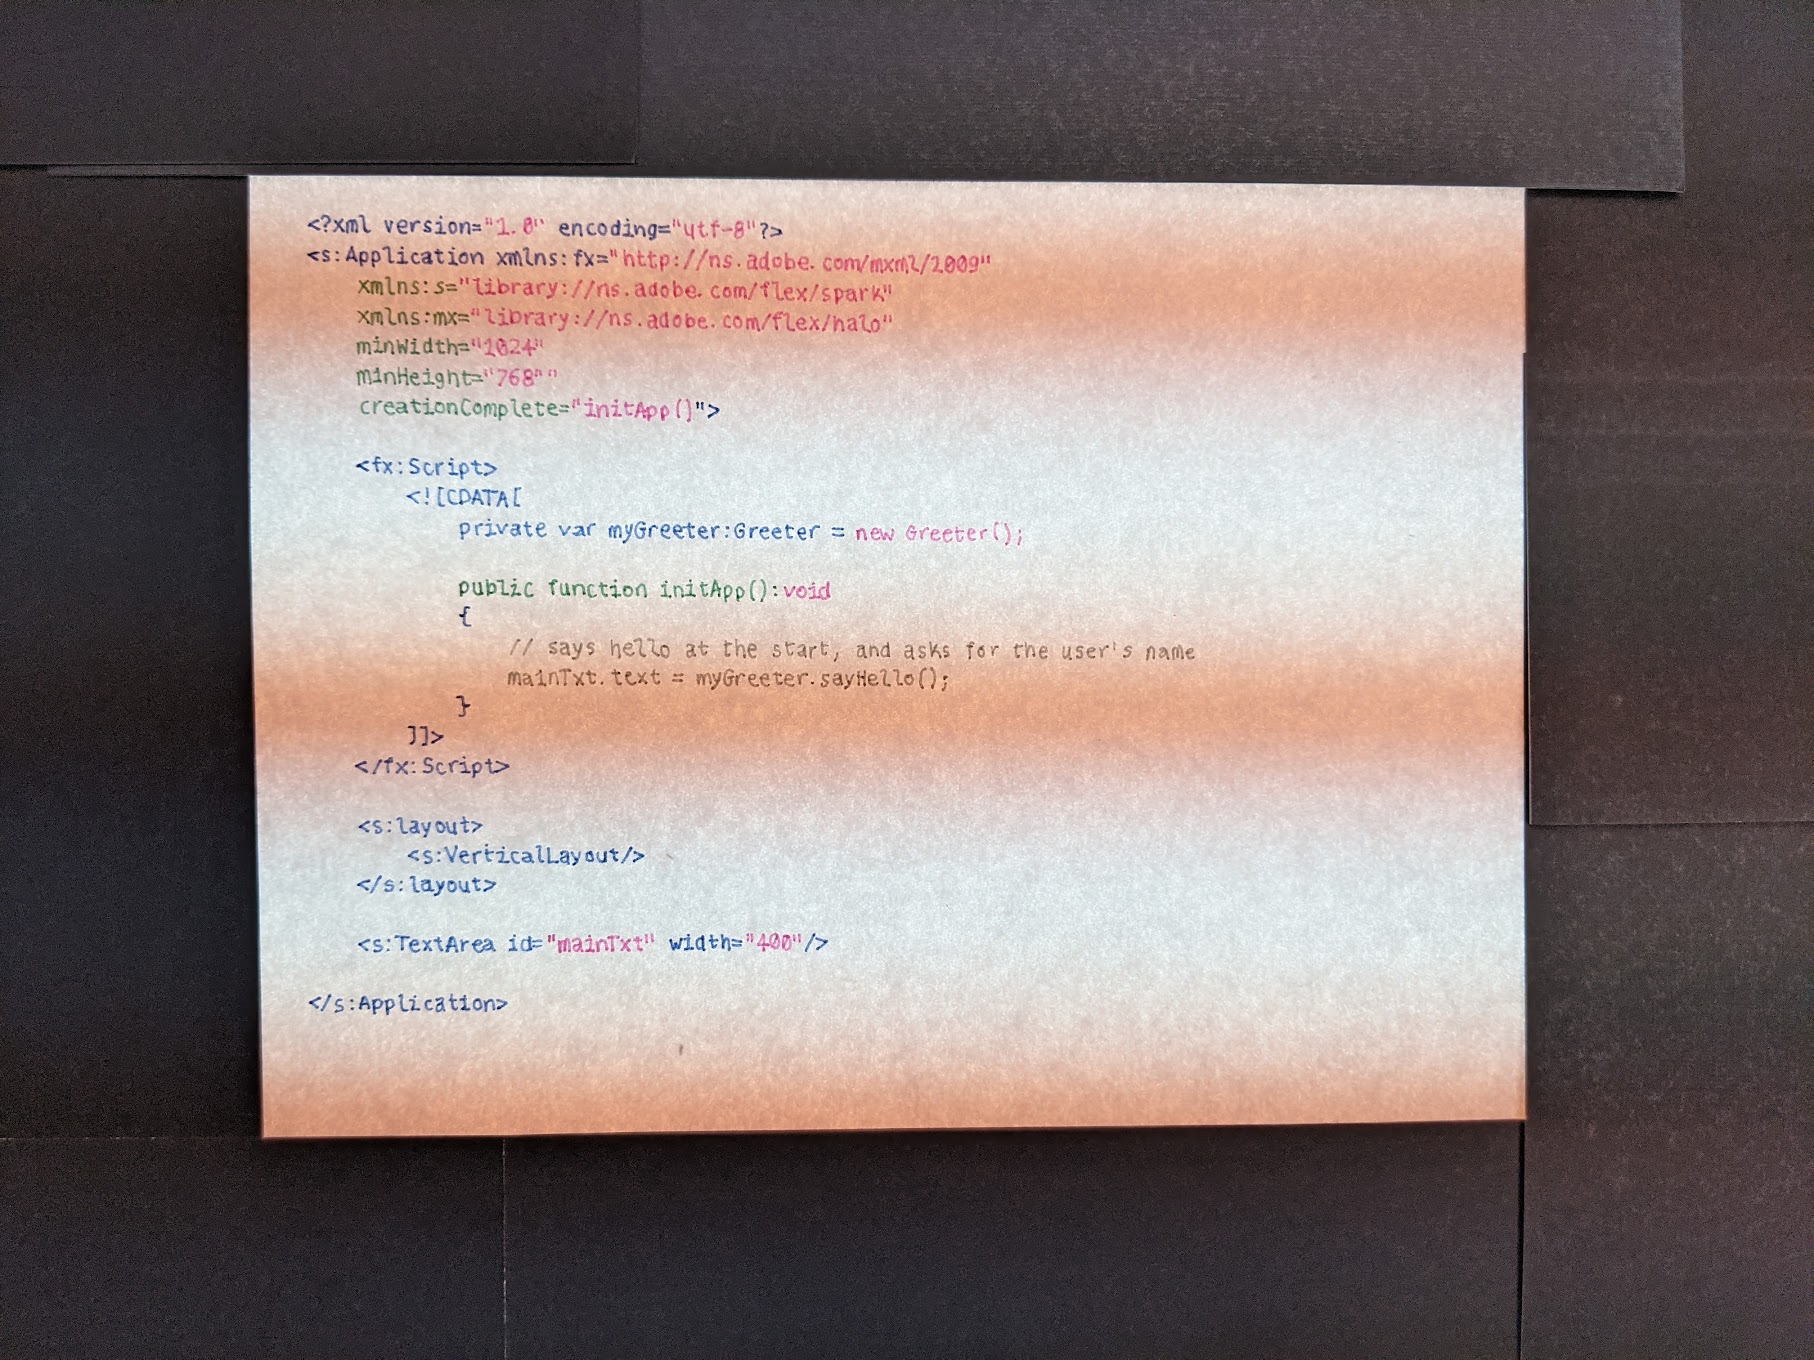 <?xml version="1.0" encoding="utf-8"?>
<s:Application xmlns:fx="http://ns.adobe.com/mxml/2009"
    xmlns:s="library://ns.adobe.com/flex/spark"
    xmlns:mx="library://ns.adobe.com/flex/halo"
    minWidth="1024"
    minHeight="768""
    creationComplete="initApp()">

    <fx:Script>
        <![CDATA[
            private var myGreeter:Greeter = new Greeter();

            public function initApp():void
            {
                // says hello at the start, and asks for the user's name
                mainTxt.text = myGreeter.sayHello();
            }
        ]]>
    </fx:Script>

    <s:layout>
        <s:VerticalLayout/>
    </s:layout>

    <s:TextArea id="mainTxt" width="400"/>

</s:Application>